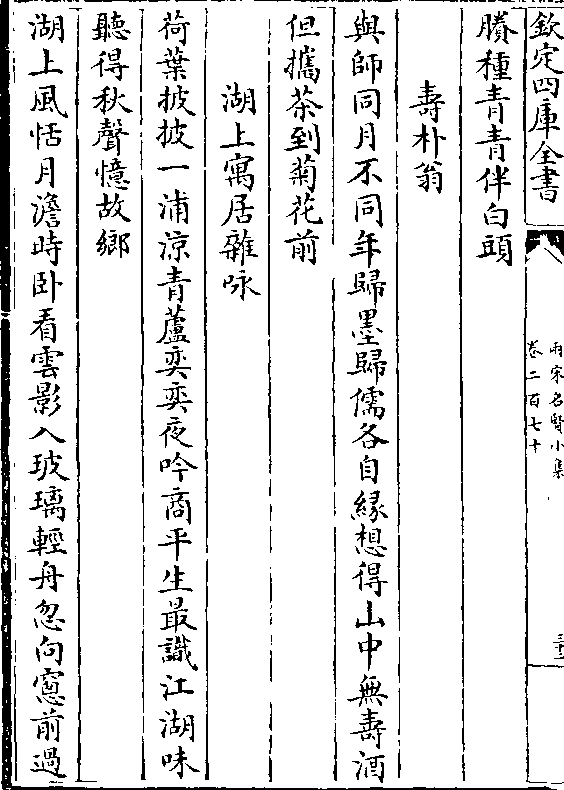 欽定四庫全書
兩宋名賢小集
卷二百七十
三十二
賸種青青伴白頭
壽朴翁
與師同月不同年歸墨歸儒各自緣想得山中無壽酒
但攜茶到菊花前
湖上寓居雜咏
荷葉披披一浦涼青蘆奕奕夜吟商平生最識江湖味
聽得秋聲憶故鄉
湖上風恬月澹時卧看雲影入玻璃輕舟忽向窻前過